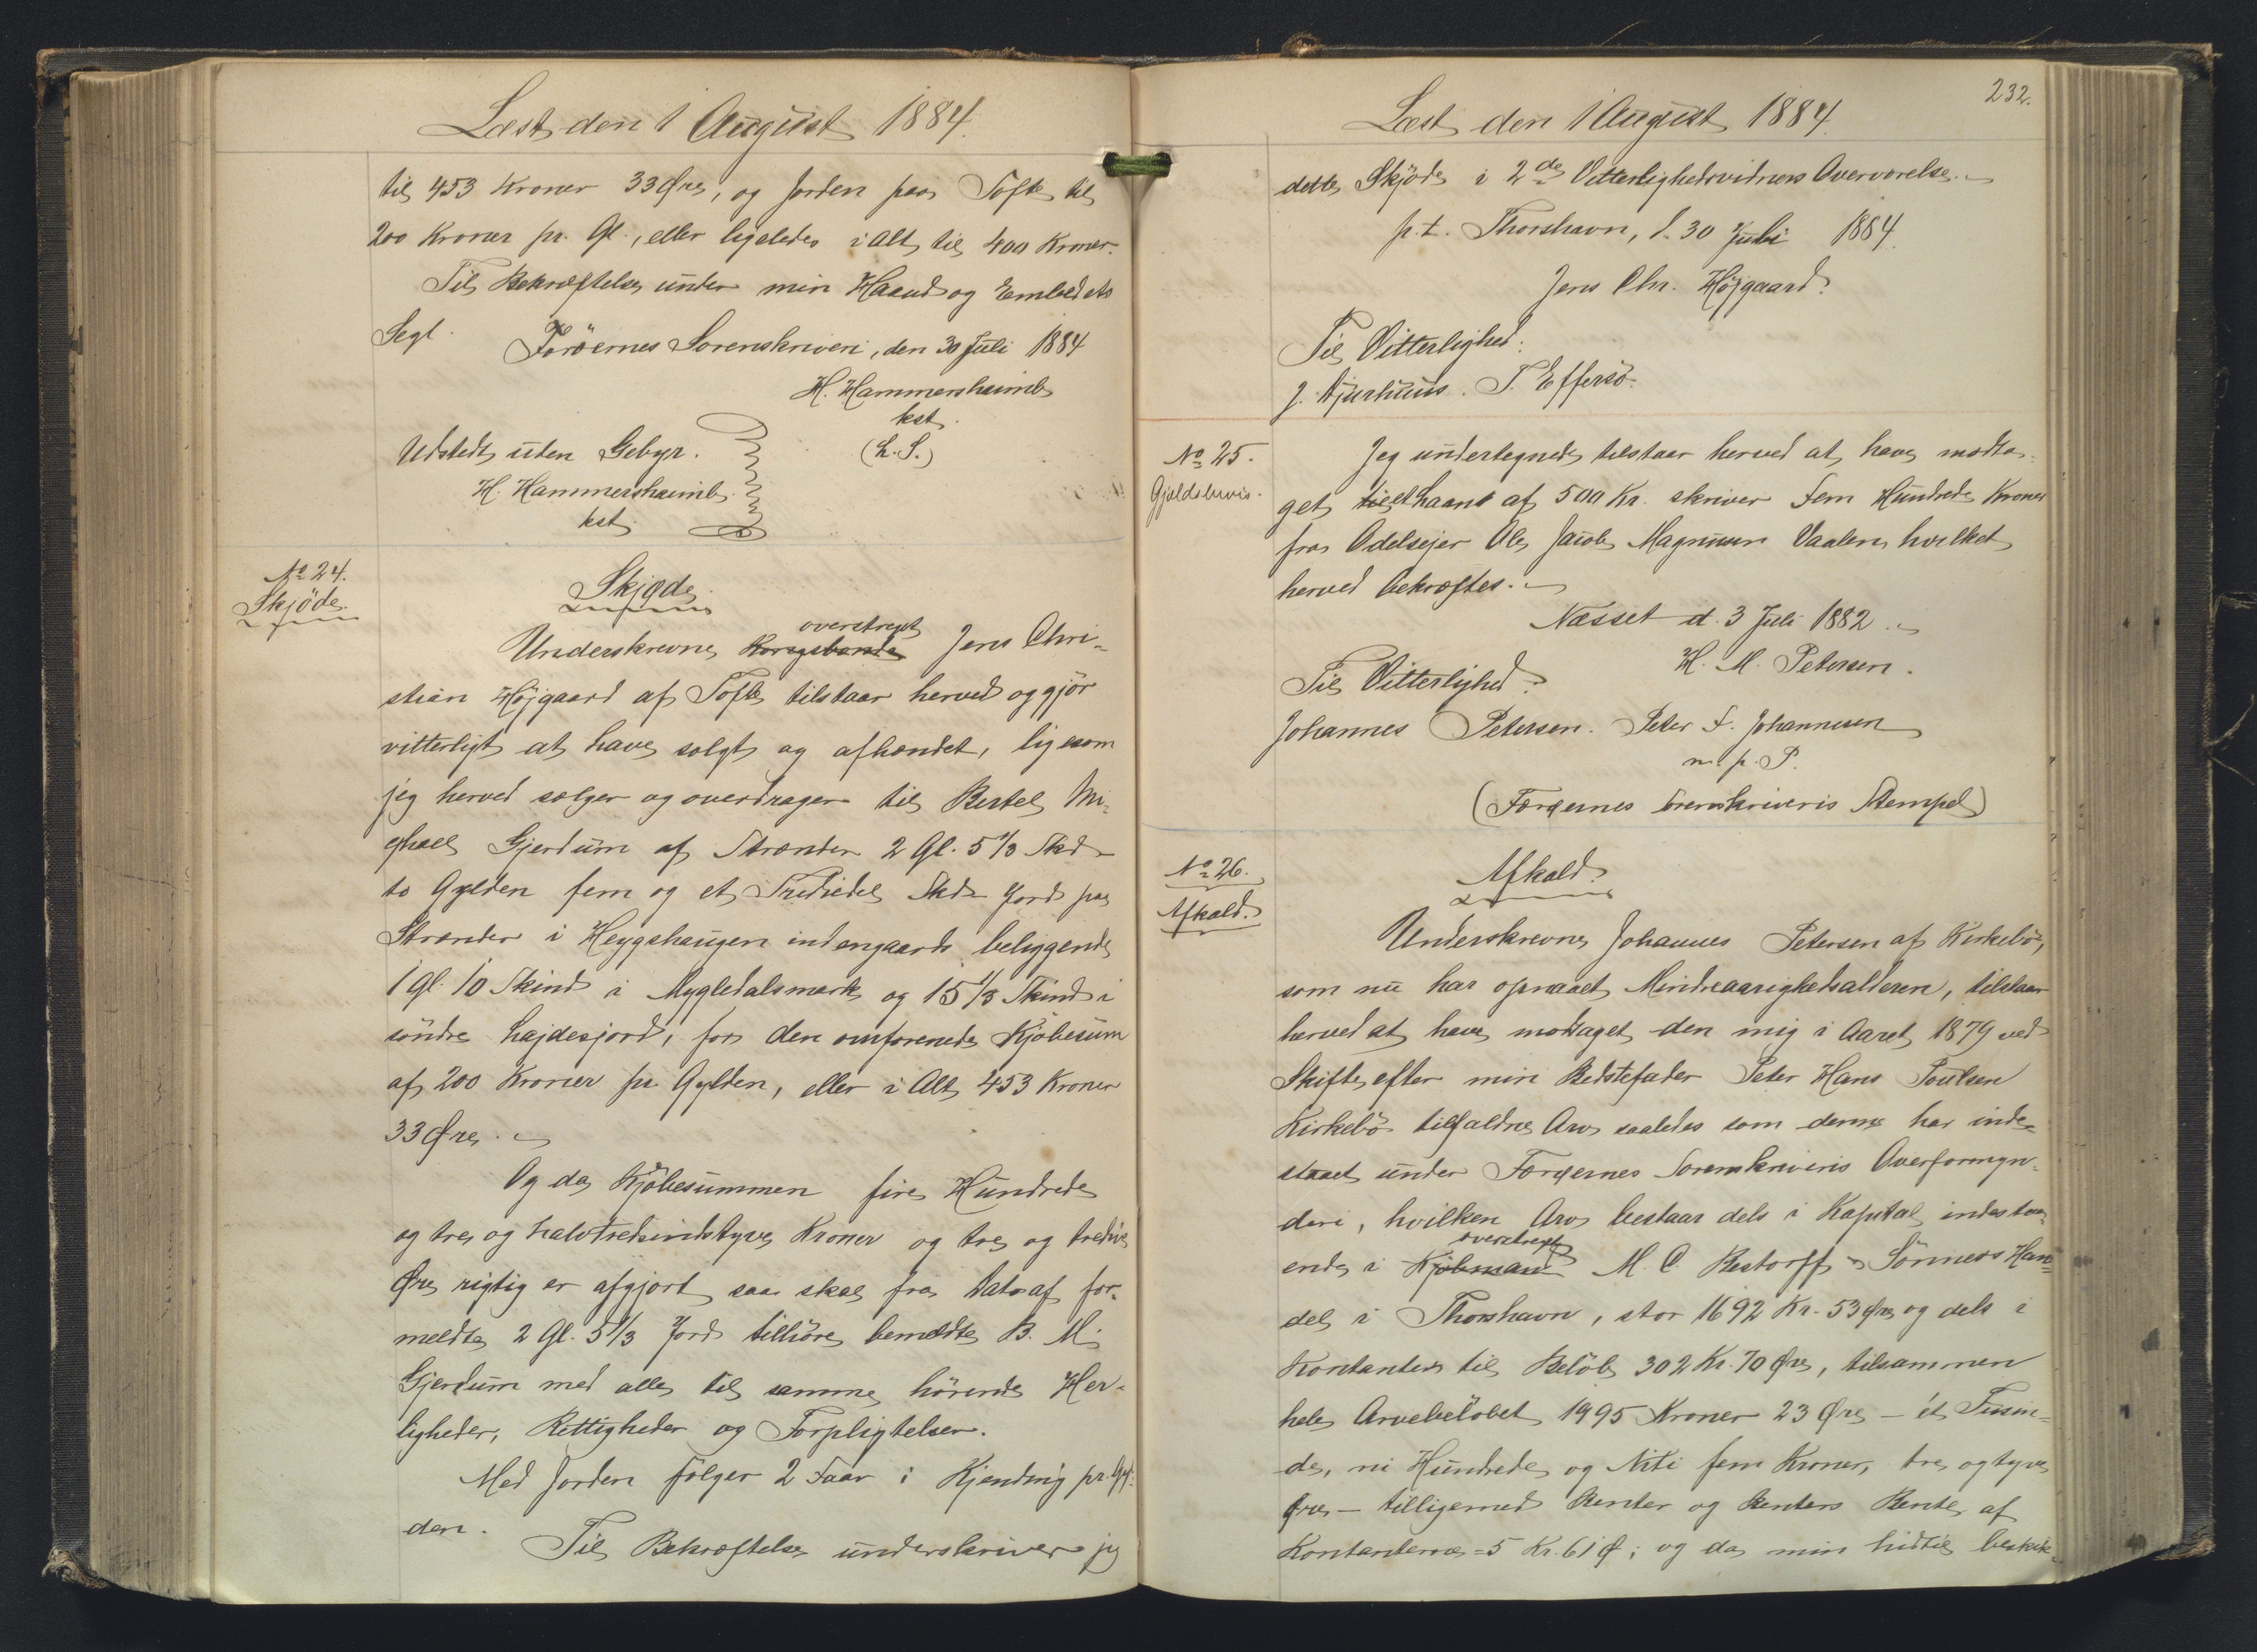 Læst den 1 August 1884.
til 453 Kroner 33 Øre, og Jorden paa Tofte til
200 Kroner pr. Gl., eller ligeledes i Alt til 400 Kroner.
Til Bekræftelse under min Haand og Embedets
Segl.
Færøernes Sorenskriveri, den 30 Juli 1884
H. Hammershaimb
kst.
(L. S.)
Udstedt uden Gebyr.
H. Hammershaimb
kst.
No 24.
Skjöde.
Skjøde.
overstreget
Underskrevne Kongsbonde Jens Chri-
stian Højgaard af Tofte tilstaar herved og gjör
vitterligt at have solgt og afhændet, ligesom
jeg herved sælger og overdrager til Bertel Mi-
chael Gjerdum af Strænder 2 Gl. 5 1/3 Skd
to Gylden fem og et Trediedel Skd Jord paa
Strænder i Heygshaugen indengaards beliggende
1 gl. 10 Skind i Mygledalsmark og 15 1/3 Skind i
söndre Lajdesjord, for den omforenede Kjöbesum
af 200 Kroner pr Gylden, eller i Alt 453 Kroner
33 Øre.
Og da Kjöbesummen fire Hundrede
og tre og halvtredsindstyve Kroner og tre og tredive
Øre rigtig er afgjort saa skal fra Dato af for-
meldte 2 Gl. 5 1/3 Jord tilhöre bemeldte B. M.
Gjerdum med alle til samme hörende Her-
ligheder, Rettigheder og Forpligtelser.
Med Jorden fölger 2 Faar i Kjending pr. Gyl-
den.
Til Bekræftelse underskriver jeg
232.
Læst den 1 August 1884.
dette Skjöde i 2de Vitterlighedsvidners Overværelse.
p.t. Thorshavn, d. 30 Juli 1884.
Jens Chr. Højgaard.
Til Vitterlighed:
J. Djurhuus. P. Effersö.
No 25.
Gjældsbevis.
Jeg undertegnede tilstaar herved at have modta-
get til et Laan af 500 Kr. skriver Fem Hundrede Kroner
fra Odelsejer Ole Jacob Magnusen Vaalen hvilket
herved bekræftes.
Næsset d. 3 Juli 1882.
H. M. Petersen.
Til Vitterlighed:
Johannes Petersen. Peter F. Johannesen
m. p. P.
(Færøernes Sorenskriveris Stempel)
No 26.
Afkald.
Afkald.
Underskrevne Johannes Petersen af Kirkebö,
som nu har opnaaet Mindreaarighedsalderen, tilstaar
herved at have modtaget den mig i Aaret 1879 ved
Skifte efter min Bedstefader Peter Hans Poulsen
Kirkebö tilfaldne Arv saaledes som denne har inde-
staaet under Færøernes Sorenskriveris Overformyn-
deri, hvilken Arv bestaar dels i Kapital indestaa-
overstreget
ende i Kjöbmand M. C. Restorff & Sönners Han-
del i Thorshavn, stor 1692 Kr. 53 Øre og dels i
Kontanter til Belöb 302 Kr. 70 Øre, tilsammen
hele Arvebelöbet 1995 Kroner 23 Øre – ét Tusin-
de, ni Hundrede og Niti fem Kroner, tre og tyve
Øre – tilligemed Renter og Renters Rente af
Kontanterne = 5 Kr. 61 Ø; og da min hidtil beskik-